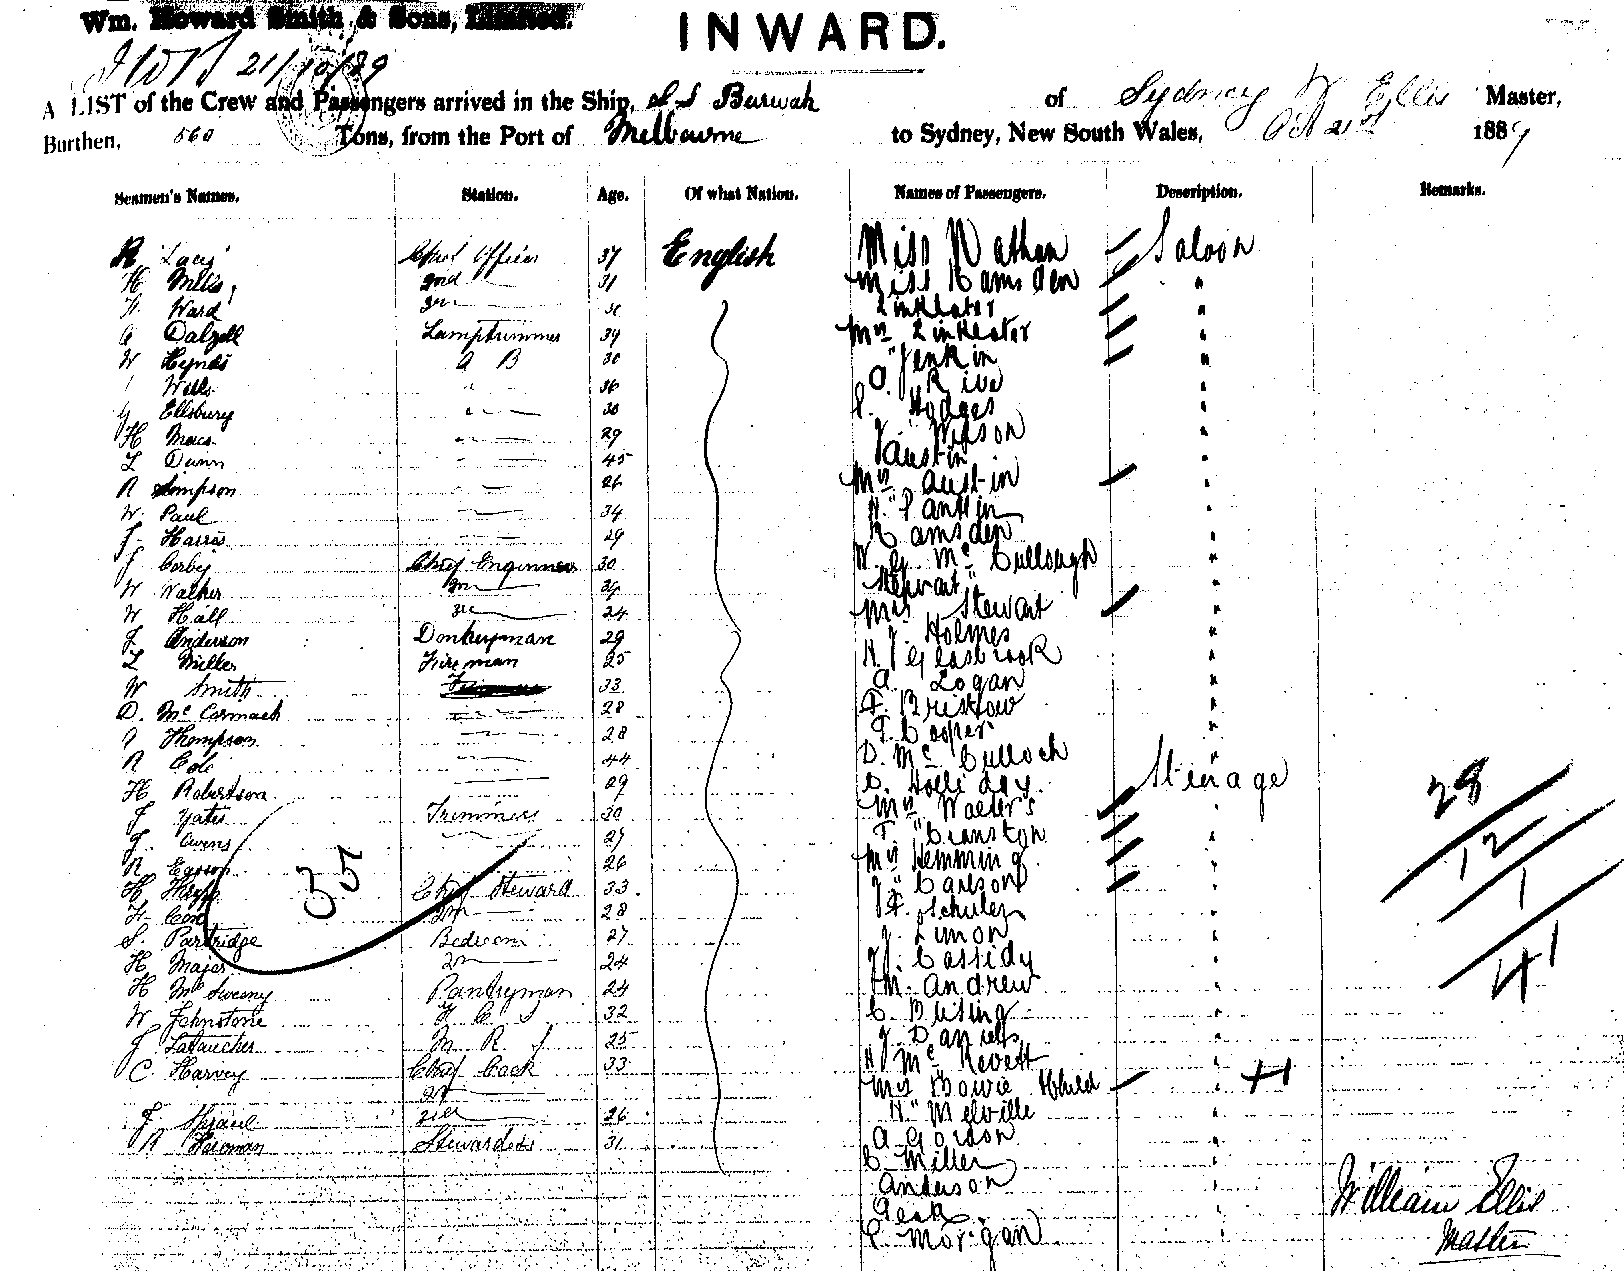 Wm. Howard Smith & Sons, Limited.
INWARD.
21/10/89
A LIST of the Crew and Passengers arrived in the Ship, S.S Burwah of Sydney W Ellis Master,
Burthen, 560 Tons, from the Port of Melbourne to Sydney, New South Wales, Oct 21st 1889
Seamen's Names. Station. Age. Of what Nation. Names of Passengers. Description. Remarks.
R Lacy Chief Officer 37 English Miss Nathan Saloon
H Mills 2nd 31 Miss Ramsden "
Ward 3rd Linklater "
Dalzell Lamptrimmer 39 Mrs Linklater "
W Hynds A B 30 " Jenkin "
Wells " 36 O. Rive "
G Ellsbury " 30 Hodges "
H 29 Wilson "
L Dunn 45 Austin "
R Simpson 26 Mrs Austin "
W. Paul 34 "
J. Harris 29 Ramsden "
J Corby Chief Engineer 30 W. G. Mc Cullough "
W Walker 2nd 34 Stewart "
W Hall 3rd 24 Mrs Stewart "
J Anderson Donkeyman 29 Holmes "
L Miller Fireman 25 H. J Glasbrook "
W Smith 33 A. Logan "
D. Mc Cormack 28 F. Bristow "
Thompson 28 T. Cooper "
R Cole 44 D. Mc Culloch "
H Robertson 29 Holliday Steerage
J Yates Trimmers 30 Mrs Walters "
J. Owens 27 " Cranston "
R Easson 26 Mrs Hemming "
H Chief Steward 33 " Carlson "
H. Cox 2nd 28 F. Schulez "
S. Partridge Bedroom 27 J. Limon "
H Major 2nd 24 J. Cassidy "
H Mc Sweeny Pantryman 24 M. Andrew "
W Johnstone F C 32 C. "
J Latoucher M R 25 J Daniels "
C. Harvey Chief Cook 33 H Mc Revett "
2nd Mrs Bowie & Child " +1
J 3rd 26 H. " Melville "
R Stewardess 31 A Gordon "
C. Miller "
Anderson "
C Morgan
35
28
12
1
41
William Ellis
Master